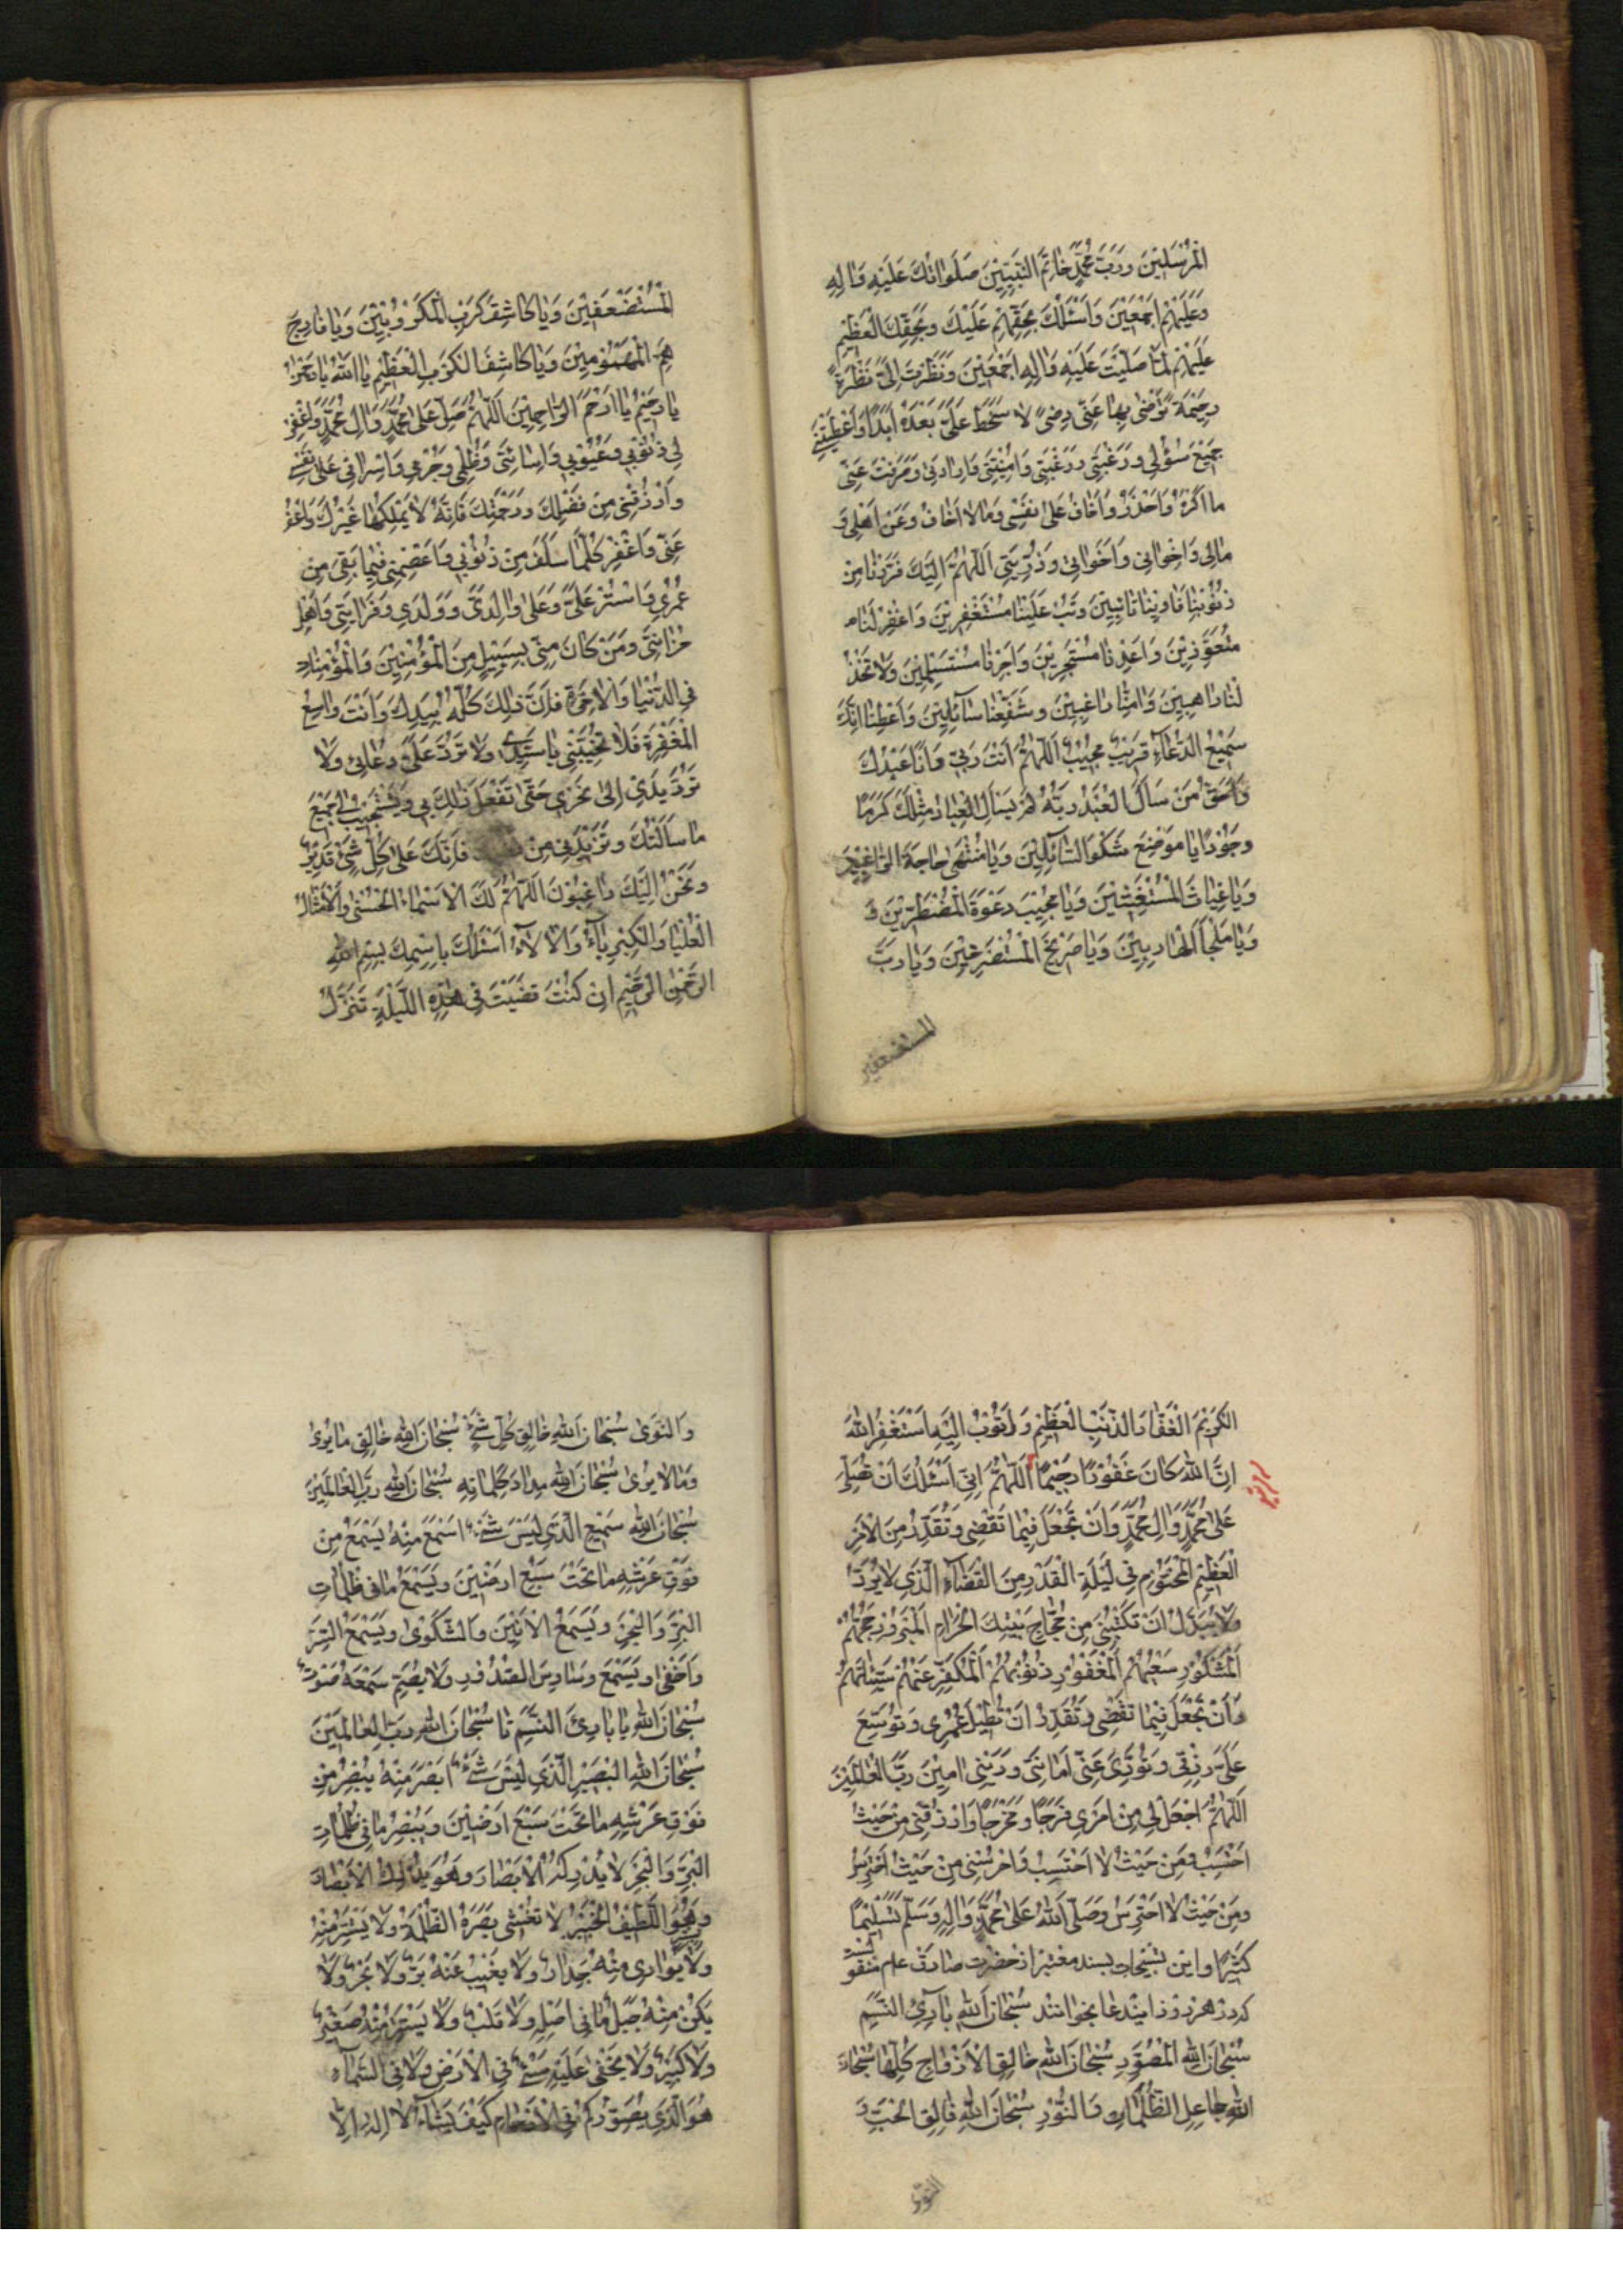 الْمُرْسَلِيْنَ وَرَبَّ مُحَمَّدٍ خَاتَمِ النَّبِيِّيْنَ صَلَوَاتُكَ عَلَيْهِ وَاٰلِهِ
وَعَلَيْهِمْ اَجْمَعِيْنَ وَاَسْئَلُكَ بِحَقِّهِمْ عَلَيْكَ وَبِحَقِّكَ الْعَظِيْمِ
عَلَيْهِمْ لَمَّا صَلَّيْتَ عَلَيْهِ وَاٰلِهِ اَجْمَعِيْنَ وَنَظَرْتَ اِلَىَّ نَظْرَةً
رَحِيْمَةً تَرْضٰى بِهَا عَنِّى رِضًى لَا سَخَطَ عَلَىَّ بَعْدَهُ اَبَدًا وَاَعْطَيْتَنِى
جَمِيْعَ سُؤْلِى وَرَغْبَتِى وَرَغْبَتِى وَاُمْنِيَّتِى وَاِرَادَتِى وَصَرَفْتَ عَنِّى
مَا اَكْرَهُ وَاَحْذَرُ وَاَخَافُ عَلٰى نَفْسِى وَمَا لَا اَخَافُ وَعَنْ اَهْلِى وَ
مَالِى وَاِخْوَانِى وَاَخَوَاتِى وَذُرِّيَّتِى اَللّٰهُمَّ اِلَيْكَ فَرَرْنَا مِنْ
ذُنُوْبِنَا فَاٰوِيْنَا تَائِبِيْنَ وَتُبْ عَلَيْنَا مُسْتَغْفِرِيْنَ وَاغْفِرْ لَنَا
مُتَعَوِّذِيْنَ وَاَعِذْنَا مُسْتَجِيْرِيْنَ وَاَجِرْنَا مُسْتَسْلِمِيْنَ وَلَا تَخْذُ
لْنَا رَاهِبِيْنَ وَاٰمِنَّا رَاغِبِيْنَ وَشَفِّعْنَا سَآئِلِيْنَ وَاَعْطِنَا اِنَّكَ
سَمِيْعُ الدُّعَآءِ قَرِيْبٌ مُجِيْبٌ اَللّٰهُمَّ اَنْتَ رَبِّى وَاَنَا عَبْدُكَ
وَاَحَقُّ مَنْ سَاَلَ الْعَبْدُ رَبَّهُ لَمْ يَسْاَلِ الْعِبَادُ مِثْلَكَ كَرَمًا
وَجُوْدًا يَا مَوْضِعَ شَكْوَى السَّآئِلِيْنَ وَيَا مُنْتَهٰى حَاجَةِ الرَّاغِبِيْنَ
وَيَا غِيَاثَ الْمُسْتَغِيْثِيْنَ وَيَا مُجِيْبَ دَعْوَةِ الْمُضْطَرِّيْنَ وَ
وَيَا مَلْجَاَ الْهَارِبِيْنَ وَيَا صَرِيْخَ الْمُسْتَصْرِخِيْنَ وَيَا رَبَّ
المستضعفين
الْمُسْتَضْعَفِيْنَ وَيَا كَاشِفَ كَرْبِ الْمَكْرُوْبِيْنَ وَيَا فَارِجَ
هَمِّ الْمَهْمُوْمِيْنَ وَيَا كَاشِفَ الْكَرْبِ الْعَظِيْمِ يَا اَللّٰهُ يَا رَحْمٰنُ
يَا رَحِيْمُ يَا اَرْحَمَ الرَّاحِمِيْنَ اَللّٰهُمَّ صَلِّ عَلٰى مُحَمَّدٍ وَاٰلِ مُحَمَّدٍ وَاغْفِرْ
لِى ذُنُوْبِى وَعُيُوْبِى وَاِسَائَتِى وَظُلْمِى وَجُرْمِى وَاِسْرَافِى عَلٰى نَفْسِى
وَارْزُقْنِى مِنْ فَضْلِكَ وَرَحْمَتِكَ فَاِنَّهُ لَا يَمْلِكُهَا غَيْرُكَ وَاعْفُ
عَنِّى وَاغْفِرْ كُلَّمَا سَلَفَ مِنْ ذُنُوْبِى وَاعْصِمْنِى فِيْمَا بَقِىَ مِنْ
عُمْرِى وَاسْتُرْ عَلَىَّ وَعَلٰى وَالِدَىَّ وَوَلَدِى وَقَرَابَتِى وَاَهْلِ
حُزَانَتِى وَمَنْ كَانَ مِنِّى بِسَبِيْلٍ مِنَ الْمُؤْمِنِيْنَ وَالْمُؤْمِنَاتِ
فِى الدُّنْيَا وَالْاٰخِرَةِ فَاِنَّ ذٰلِكَ كُلَّهُ بِيَدِكَ وَاَنْتَ وَاسِعُ
الْمَغْفِرَةِ فَلَا تُخَيِّبْنِى يَا سَيِّدِى وَلَا تَرُدَّ عَلَىَّ دُعَائِى وَلَا
تَرُدَّ يَدِىْ اِلٰى نَحْرِى حَتّٰى تَفْعَلَ ذٰلِكَ بِى وَتَسْتَجِيْبَ لِى جَمِيْعَ
مَا سَاَلْتُكَ وَتَزِيْدَنِى مِنْ فَاِنَّكَ عَلٰى كُلِّ شَىْءٍ قَدِيْرٌ
وَنَحْنُ اِلَيْكَ رَاغِبُوْنَ اَللّٰهُمَّ لَكَ الْاَسْمَاءُ الْحُسْنٰى وَالْاَمْثَالُ
الْعُلْيَا وَالْكِبْرِيَآءُ وَالْاٰلَآءُ اَسْئَلُكَ بِاسْمِكَ بِسْمِ اللهِ
الرَّحْمٰنِ الرَّحِيْمِ اِنْ كُنْتَ قَضَيْتَ فِى هٰذِهِ اللَّيْلَةِ تَنَزُّلَ
الْكَرِيْمَ الْغَفَّارَ الذَّنْبِ الْعَظِيْمِ وَاَتُوْبُ اِلَيْهِ اَسْتَغْفِرُ اللهَ
اِنَّ اللهَ كَانَ غَفُوْرًا رَحِيْمًا اَللّٰهُمَّ اِنِّى اَسْئَلُكَ اَنْ تُصَلِّىَ
عَلٰى مُحَمَّدٍ وَاٰلِ مُحَمَّدٍ وَاَنْ تَجْعَلَ فِيْمَا تَقْضِى وَتُقَدِّرُ مِنَ الْاَمْرِ
الْعَظِيْمِ الْمَحْتُوْمِ فِى لَيْلَةِ الْقَدْرِ مِنَ الْقَضَآءِ الَّذِى لَا يُرَدُّ
وَلَا يُبَدَّلُ اَنْ تَكْتُبَنِى مِنْ حُجَّاجِ بَيْتِكَ الْحَرَامِ الْمَبْرُوْرِ حَجُّهُمْ
الْمَشْكُوْرِ سَعْيُهُمْ الْمَغْفُوْرِ ذُنُوْبُهُمْ الْمُكَفَّرِ عَنْهُمْ سَيِّئَاتُهُمْ
وَاَنْ تَجْعَلَ فِيْمَا تَقْضِى وَتُقَدِّرُ اَنْ تُطِيْلَ عُمْرِى وَتُوَسِّعَ
عَلَىَّ رِزْقِى وَتُؤَدِّىَ عَنِّى اَمَانَتِى وَدَيْنِى اٰمِيْنَ رَبَّ الْعَالَمِيْنَ
اَللّٰهُمَّ اجْعَلْ لِى مِنْ اَمْرِى فَرَجًا وَمَخْرَجًا وَارْزُقْنِى مِنْ حَيْثُ
اَحْتَسِبُ وَمِنْ حَيْثُ لَا اَحْتَسِبُ وَاحْرُسْنِى مِنْ حَيْثُ اَحْتَرِسُ
وَمِنْ حَيْثُ لَا اَحْتَرِسُ وَصَلَّى اللهُ عَلٰى مُحَمَّدٍ وَاٰلِهِ وَسَلَّمَ تَسْلِيْمًا
كَثِيْرًا واین تسبیحات بسند معتبر از حضرت صادق علم منقو لست
که در هر روز اینْدعا بخوانند سُبْحَانَ اللهِ بَارِئِ النَّسَمِ
سُبْحَانَ اللهِ الْمُصَوِّرِ سُبْحَانَ اللهِ خَالِقِ الْاَزْوَاجِ كُلِّهَا سُبْحَانَ
اللهِ جَاعِلِ الظُّلُمَاتِ وَالنُّوْرِ سُبْحَانَ اللهِ فَالِقِ الْحَبِّ وَ
النوى
وَالنَّوٰى سُبْحَانَ اللهِ خَالِقِ كُلِّ شَىْءٍ سُبْحَانَ اللهِ خَالِقِ مَا يُرٰى
وَمَا لَا يُرٰى سُبْحَانَ اللهِ مِدَادَ كَلِمَاتِهِ سُبْحَانَ اللهِ رَبِّ الْعَالَمِيْنَ
سُبْحَانَ اللهِ سَمِيْعِ الَّذِى لَيْسَ شَىْءٌ اَسْمَعَ مِنْهُ يَسْمَعُ مِنْ
فَوْقِ عَرْشِهِ مَا تَحْتَ سَبْعِ اَرَضِيْنَ وَيَسْمَعُ مَا فِى ظُلُمَاتِ
الْبَرِّ وَالْبَحْرِ وَيَسْمَعُ الْاَنِيْنَ وَالشَّكْوٰى وَيَسْمَعُ السِّرَّ
وَاَخْفٰى وَيَسْمَعُ وَسَاوِسَ الصُّدُوْرِ وَلَا يُصِمُّ سَمْعَهُ صَوْتٌ
سُبْحَانَ اللهِ يَا بَارِئَ النَّسَمِ تا سُبْحَانَ اللهِ رَبِّ الْعَالَمِيْنَ
سُبْحَانَ اللهِ الْبَصِيْرِ الَّذِى لَيْسَ شَىْءٌ اَبْصَرَ مِنْهُ يُبْصِرُ مِنْ
فَوْقِ عَرْشِهِ مَا تَحْتَ سَبْعِ اَرَضِيْنَ وَيُبْصِرُ مَا فِى ظُلُمَاتِ
الْبَرِّ وَالْبَحْرِ لَا يُدْرِكُهُ الْاَبْصَارُ وَهُوَ يُدْرِكُ الْاَبْصَارَ
وَهُوَ اللَّطِيْفُ الْخَبِيْرُ لَا تَغْشٰى بَصَرَهُ الظُّلْمَةُ وَلَا يُسْتَتَرُ مِنْهُ
وَلَا يُوَارِى مِنْهُ جِدَارٌ وَلَا يَغِيْبُ عَنْهُ بَرٌّ وَلَا بَحْرٌ وَلَا
يَكُنُّ مِنْهُ جَبَلٌ مَا فِى اَصْلِهِ وَلَا قَلْبٌ وَلَا يَسْتَتِرُ مِنْهُ صَغِيْرٌ
وَلَا كَبِيْرٌ وَلَا يَخْفٰى عَلَيْهِ شَىْءٌ فِى الْاَرْضِ وَلَا فِى السَّمَآءِ
هُوَ الَّذِى يُصَوِّرُكُمْ فِى الْاَرْحَامِ كَيْفَ يَشَآءُ لَا اِلٰهَ اِلَّا